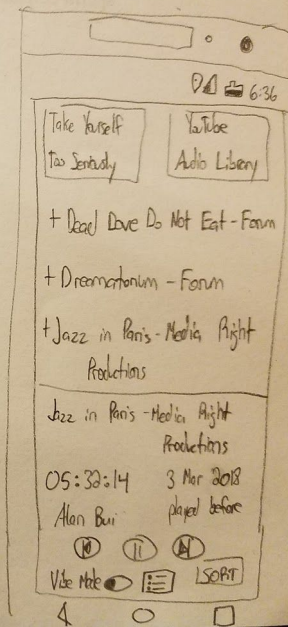 6:36
Take Yourself
Too Seriously
YouTube
Audio Library
+ Dead Dove Do Not Eat - Forum
+ Dreamatorium - Forum
+ Jazz in Paris - Media Right
Productions
Jazz in Paris - Media Right
Productions
05:32:14
3 Mar 2018
Alan Bui
played before
Vibe Mode
SORT